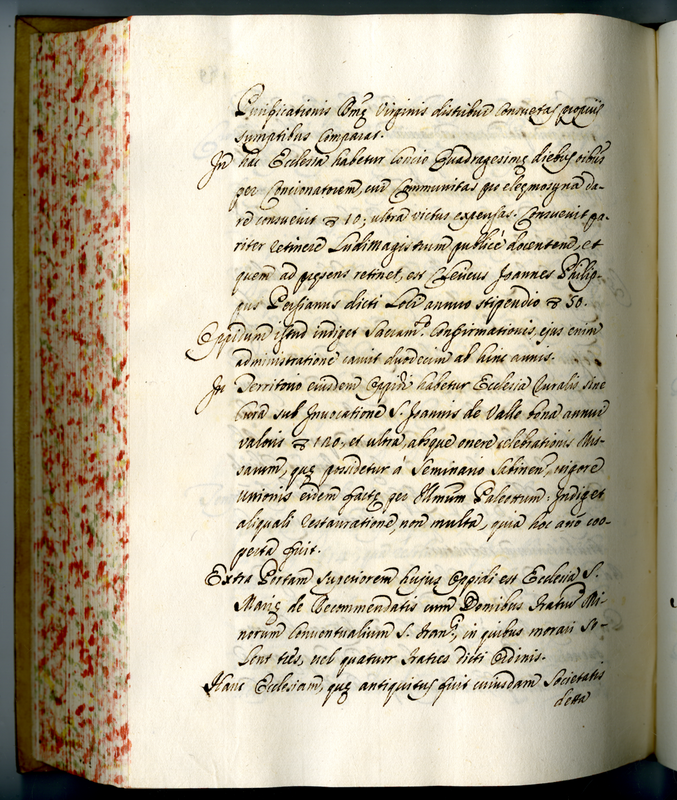 Purificationis Bmę Virginis distribui consuetas proprijs
sumptibus comparat.
In hac Ecclesia habetur Concio Quadragesimę diebus oibus
per Concionatorem, cui Communitas pro eleęmosyna da-
re consuevit 10, ultra victus expensas. Consuevit pa-
riter retinere Ludimagistrum publicè docentem, et
quem ad pręsens retinet, est Clericus Joannes Philip-
pus Persianus dicti Loci annuo stipendio 30.
Oppidum istud indiget Sacram.to Confirmationis, ejus enim
administratione caruit duodecim ab hinc annis.
In Territorio eiusdem Oppidi habetur Ecclesia Curalis sine
Cura sub Invocatione S. Joannis de Valle bona annui
valoris 120, et ultra, absque onere celebrationis Mis-
sarum, quę possidetur à Seminario Sabinen, vigore
unionis eidem factę per Illmum Paleotum. Indiget
aliquali restauratione, non multa, quia hoc año coo-
perta fuit.
Extra Portam superiorem hujus Oppidi est Ecclesia S.
Marię de Recommendatis cum Domibus Fratrum Mi-
norum Conventualium S. Fran.ci, in quibus morari so-
lent tres, vel quatuor Fratres dicti Ordinis.
Hanc Ecclesiam, quę antiquitus fuit cuiusdam Societatis
detta